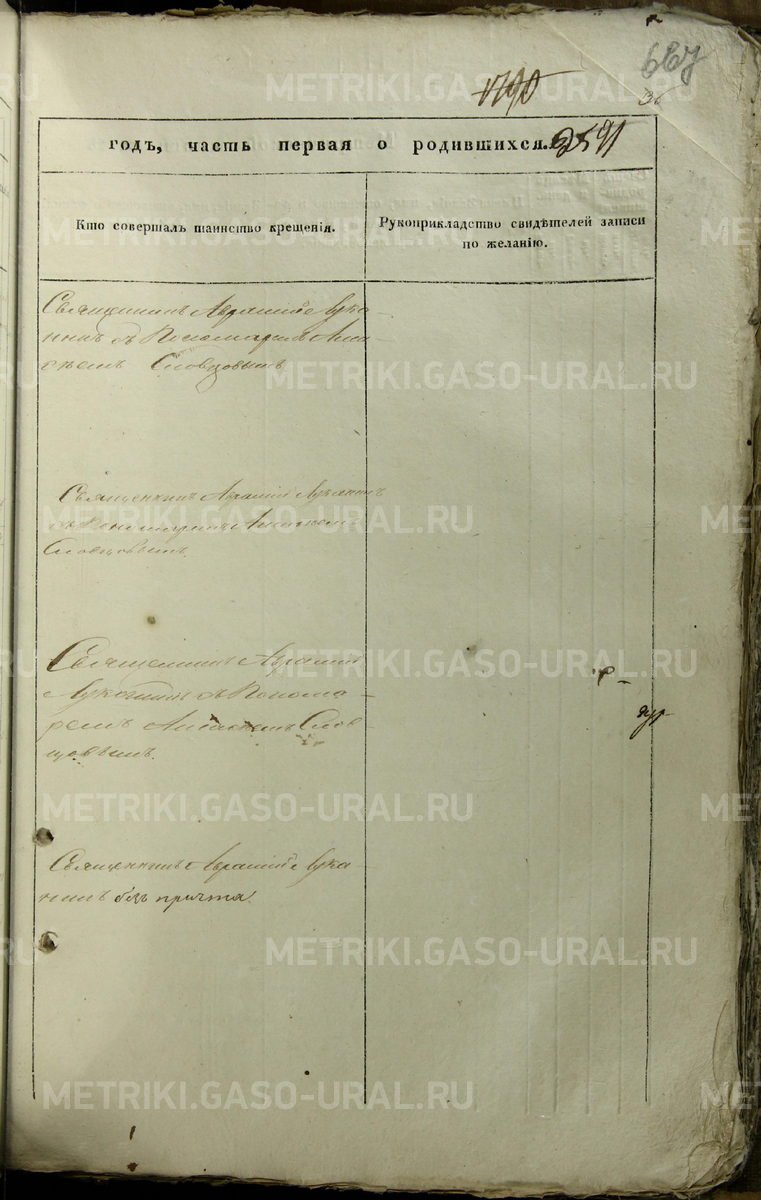 667
1790
36
годъ, часть первая о родившихся.
2591
Кто совершалъ таинство крещенія.
Рукоприкладство свидѣтелей записи
по желанію.
Священникъ Аврамій Лука-
нинъ съ Пономаремъ Ани-
скимъ Словцовымъ
Священникъ Аврамій Луканинъ
съ Пономаремъ
Словцовымъ.
Священникъ Аврамій
Луканинъ съ Понома-
ремъ Слов-
цовымъ.
Священникъ Аврамій Лука-
нинъ безъ причта.
METRIKI.GASO-URAL.RU